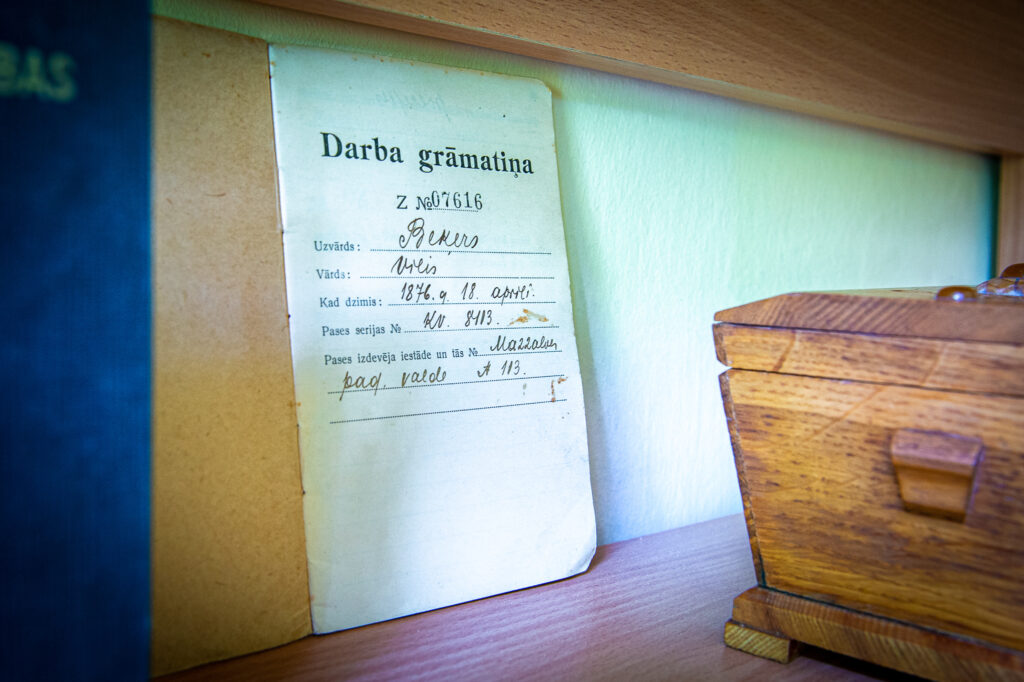 BAS
Darba grāmatiņa
Z №07616
Uzvārds: Beķers
Vārds: Vilis
Kad dzimis: 1876. g. 18. aprīlī.
Pases serijas № XV. 8113.
Pases izdevēja iestāde un tās №
pag. valde A 113.